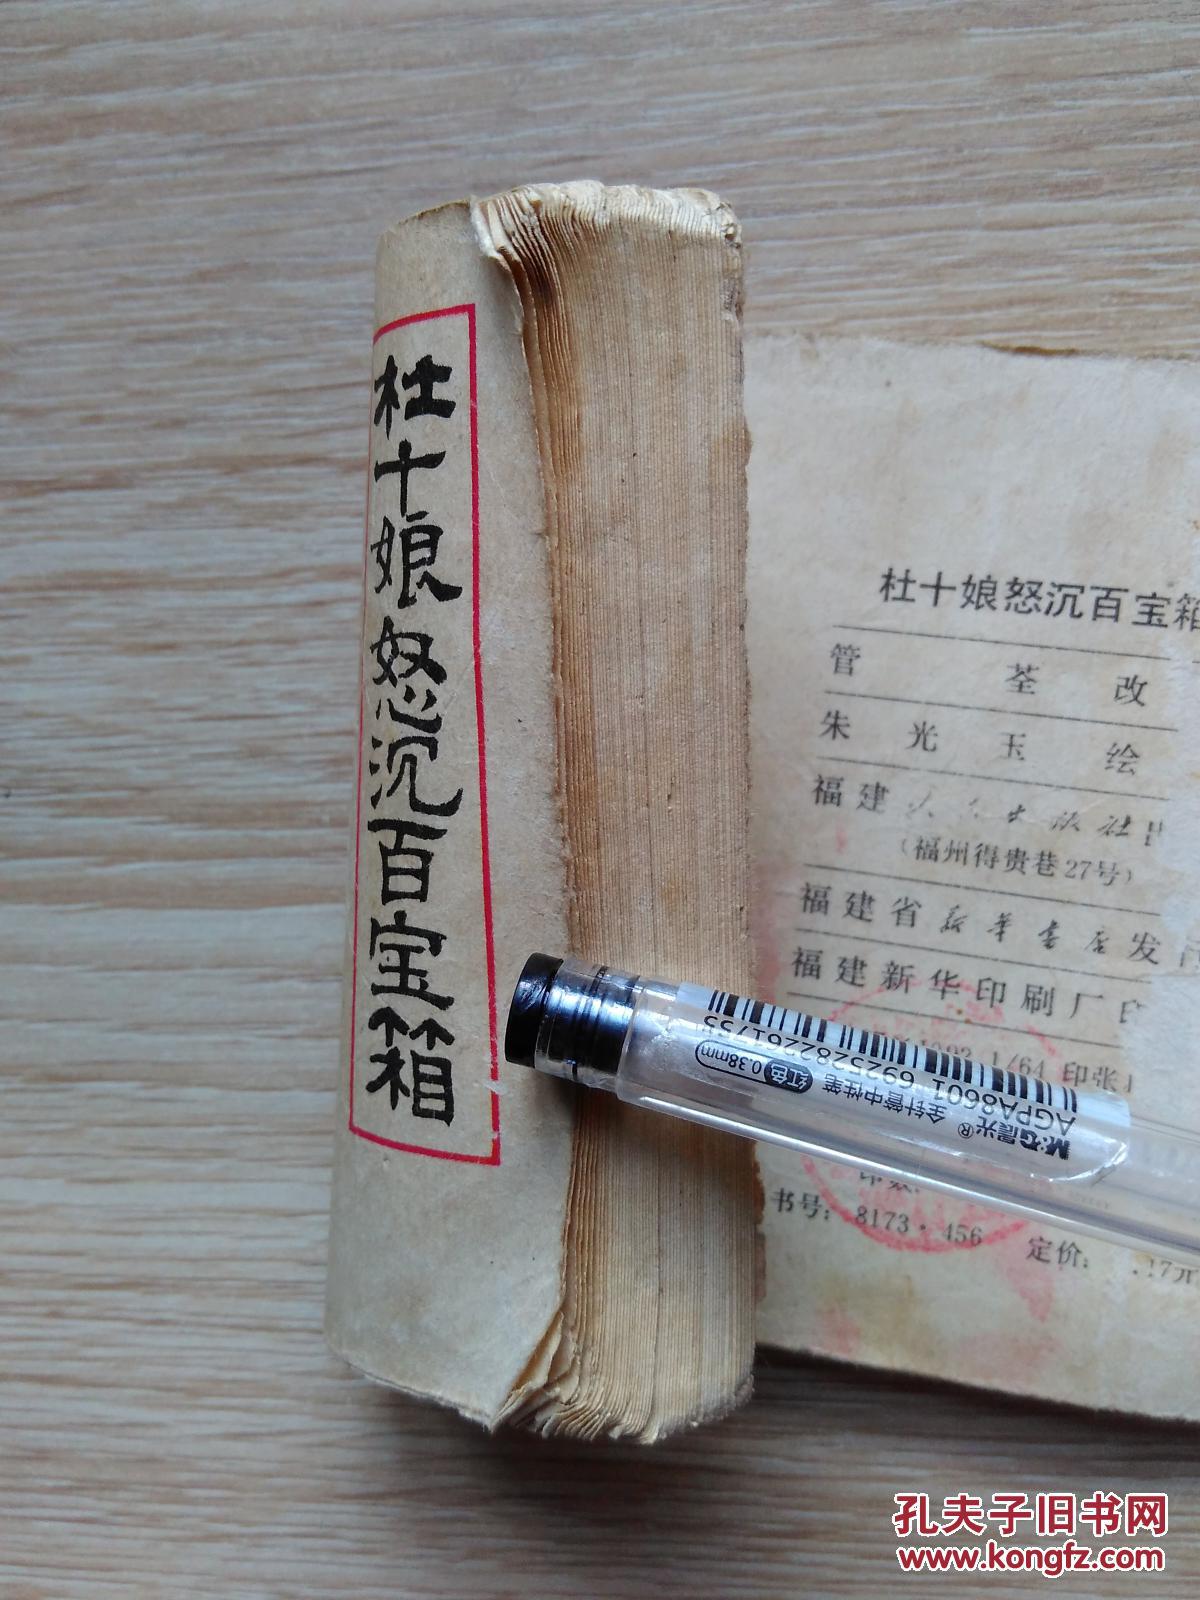 杜十娘怒沉百宝箱
杜十娘怒沉百宝箱
管荃改
朱光玉绘
福建人民出版社出
(福州得贵巷27号)
福建省新华书店发
福建新华印刷厂印
1/64 印张
印数:
书号: 8173·456 定价: .17元
6925282261755
AGPA8601
全针管中性笔 红色 0.38mm
M&G晨光®
孔夫子旧书网
www.kongfz.com